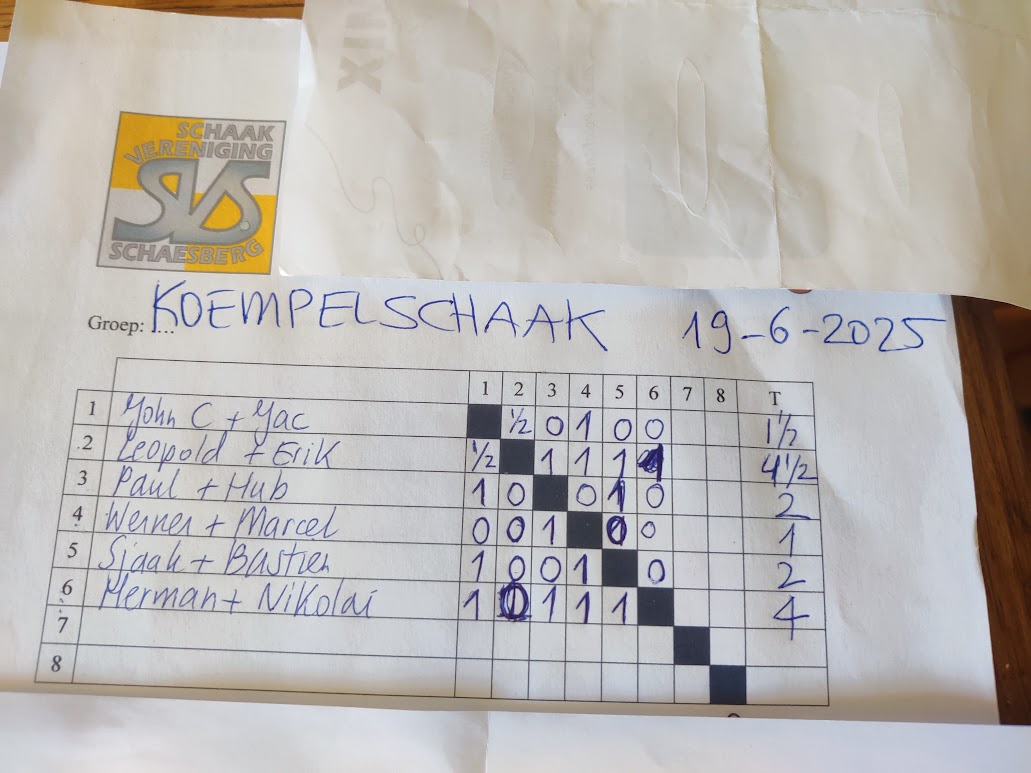 SCHAAK
VERENIGING
SVS
SCHAESBERG
Groep: KOEMPELSCHAAK 19-6-2025
1 2 3 4 5 6 7 8 T
1 John C + Jac ½ 0 1 0 0 1½
2 Leopold + Erik ½ 1 1 1 1 4½
3 Paul + Hub 1 0 0 1 0 2
4 Werner + Marcel 0 0 1 0 0 1
5 Sjaak + Bastien 1 0 0 1 0 2
6 Herman + Nikolai 1 0 1 1 1 4
7
8